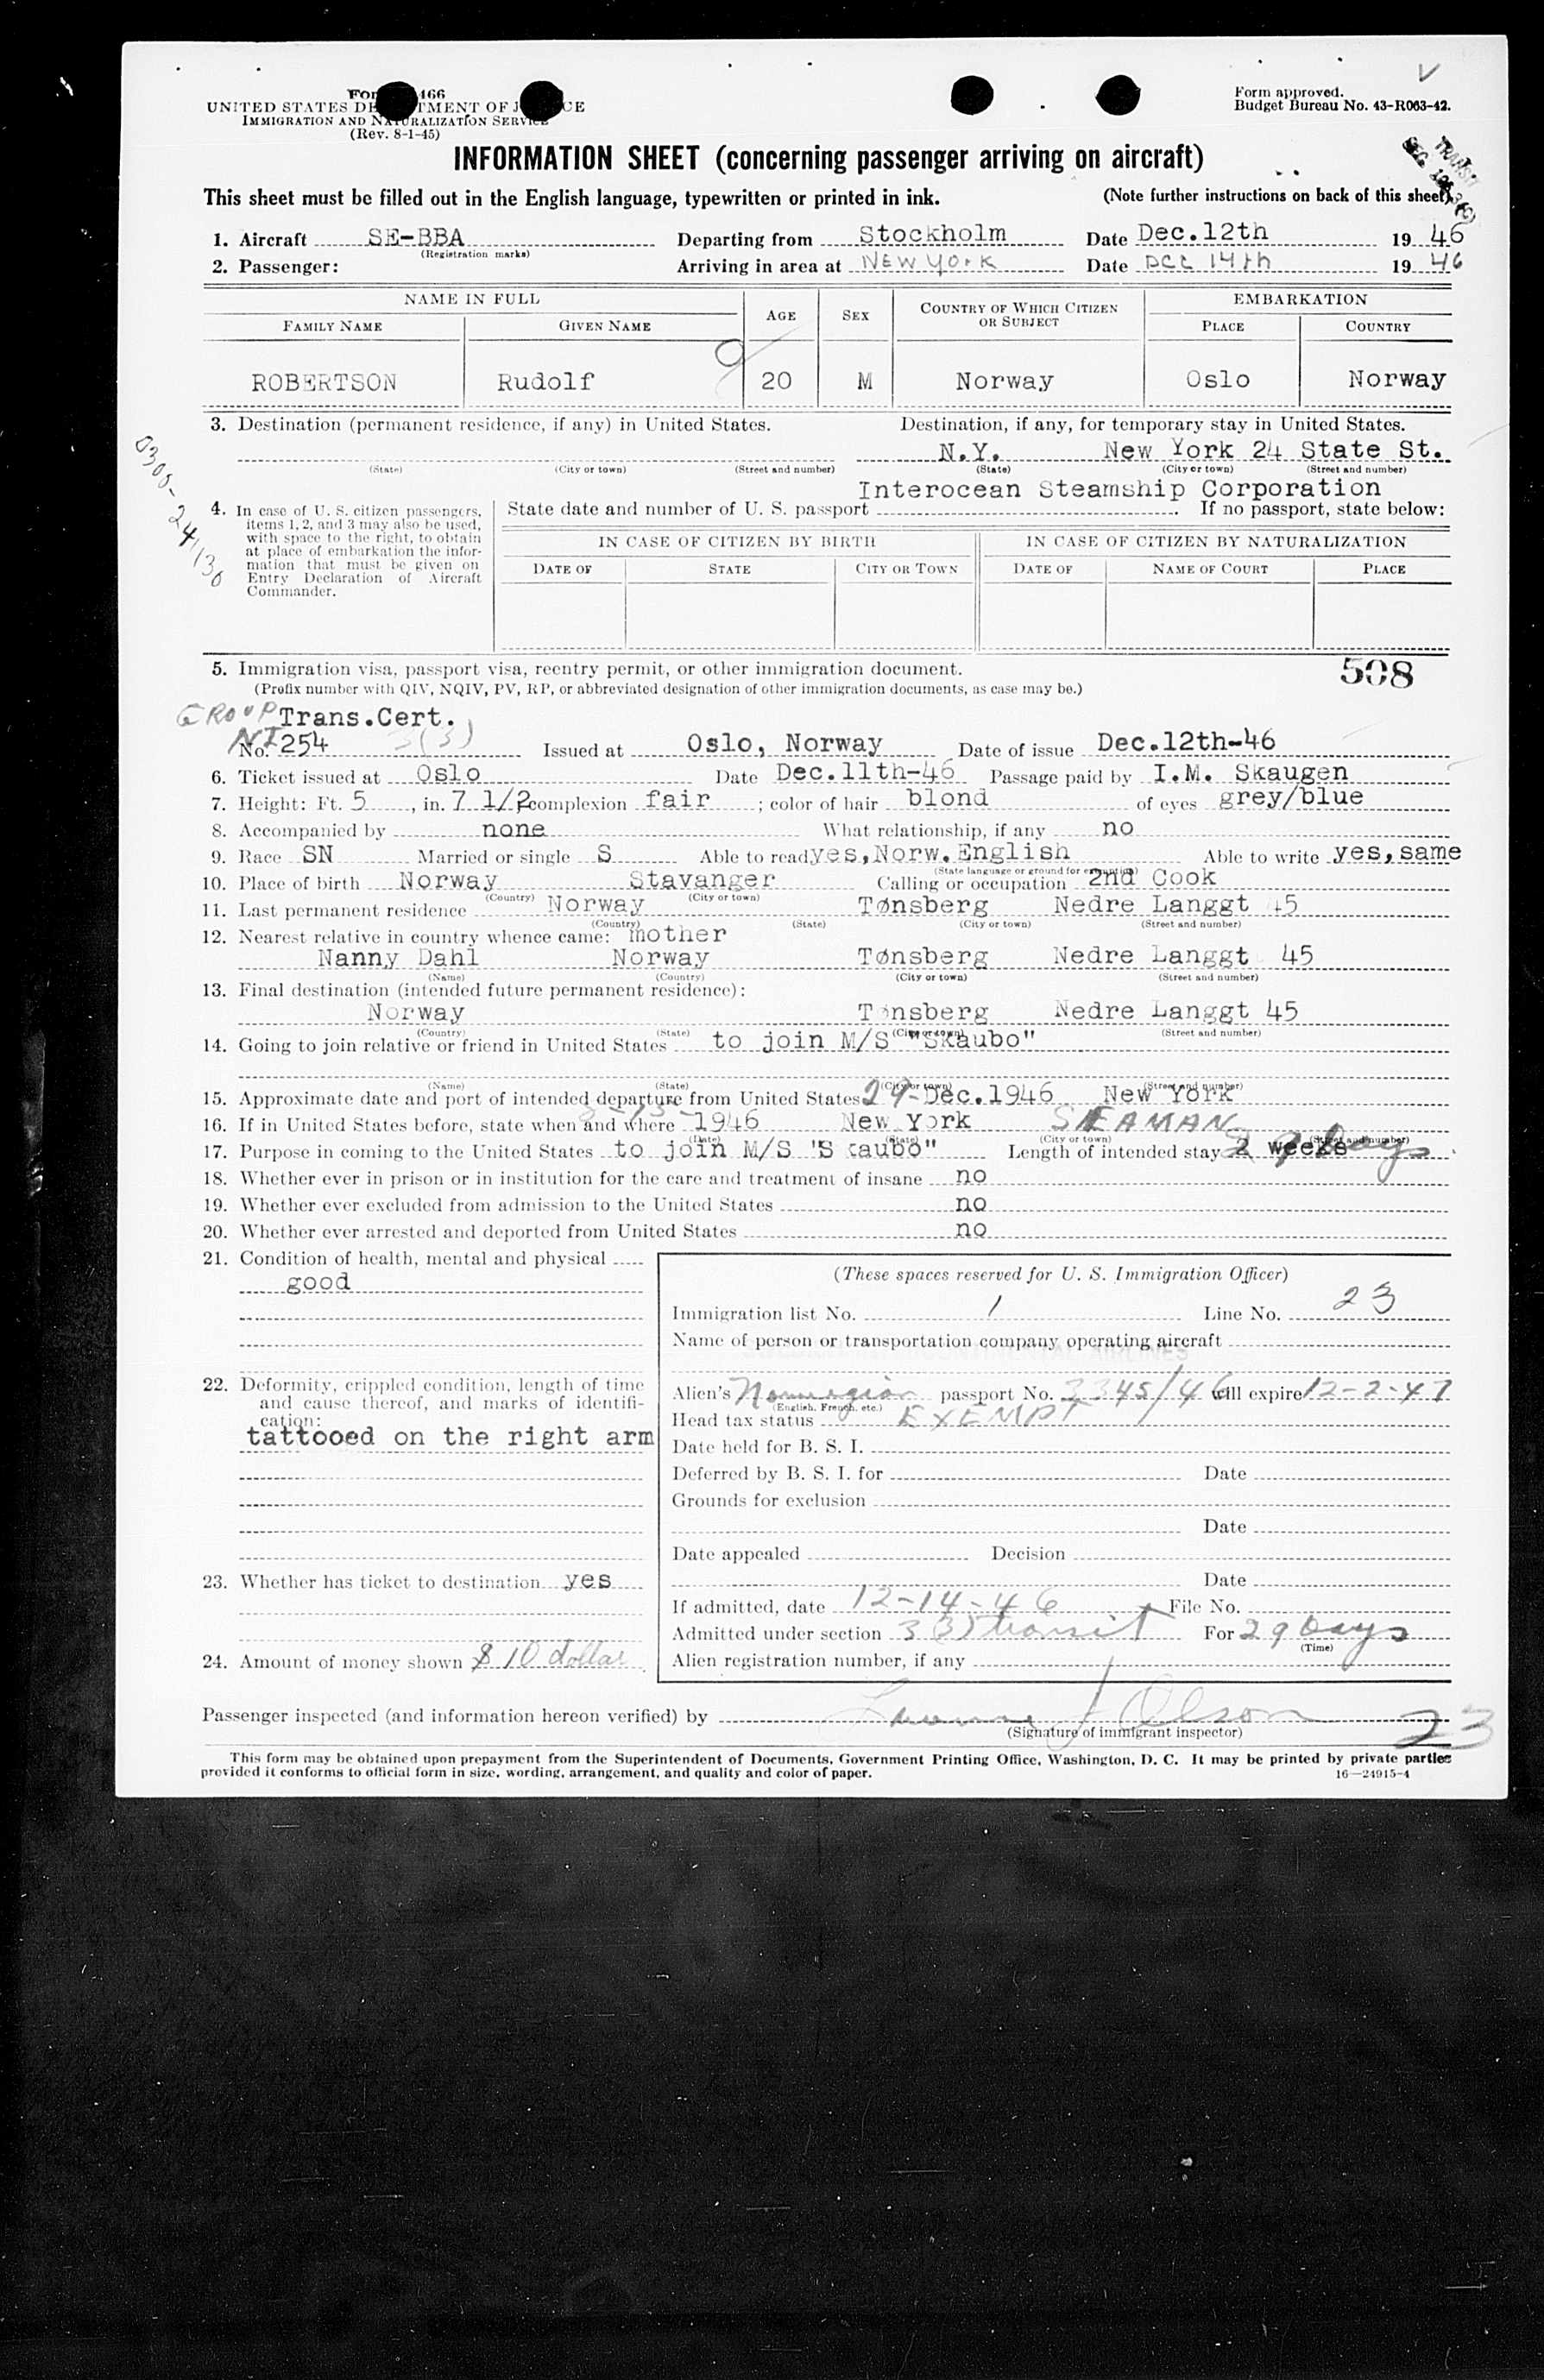 V
Form 466
UNITED STATES DEPARTMENT OF JUSTICE
IMMIGRATION AND NATURALIZATION SERVICE
(Rev. 8-1-45)
Form approved.
Budget Bureau No. 43-R063-42.
TRANSIT
INFORMATION SHEET (concerning passenger arriving on aircraft)
This sheet must be filled out in the English language, typewritten or printed in ink. (Note further instructions on back of this sheet)
1. Aircraft SE-BBA Departing from Stockholm Date Dec.12th 19 46
(Registration marks)
2. Passenger: Arriving in area at NEW YORK Date DEC 14th 19 46
NAME IN FULL AGE SEX COUNTRY OF WHICH CITIZEN OR SUBJECT EMBARKATION
FAMILY NAME GIVEN NAME PLACE COUNTRY
ROBERTSON Rudolf 20 M Norway Oslo Norway
3. Destination (permanent residence, if any) in United States. Destination, if any, for temporary stay in United States.
N.Y. New York 24 State St.
(State) (City or town) (Street and number) (State) (City or town) (Street and number)
Interocean Steamship Corporation
0300-24130
4. In case of U. S. citizen passengers, items 1, 2, and 3 may also be used, with space to the right, to obtain at place of embarkation the information that must be given on Entry Declaration of Aircraft Commander.
State date and number of U. S. passport If no passport, state below:
IN CASE OF CITIZEN BY BIRTH IN CASE OF CITIZEN BY NATURALIZATION
DATE OF STATE CITY OR TOWN DATE OF NAME OF COURT PLACE
5. Immigration visa, passport visa, reentry permit, or other immigration document. 508
(Prefix number with QIV, NQIV, PV, RP, or abbreviated designation of other immigration documents, as case may be.)
GROUP Trans.Cert.
NI No. 254 3(3) Issued at Oslo, Norway Date of issue Dec.12th-46
6. Ticket issued at Oslo Date Dec.11th-46 Passage paid by I.M. Skaugen
7. Height: Ft. 5, in. 7 1/2 complexion fair; color of hair blond of eyes grey/blue
8. Accompanied by none What relationship, if any no
9. Race SN Married or single S Able to read yes, Norw. English Able to write yes, same
(State language or ground for exemption)
10. Place of birth Norway Stavanger Calling or occupation 2nd Cook
(Country) (City or town)
11. Last permanent residence Norway Tønsberg Nedre Langgt 45
(Country) (State) (City or town) (Street and number)
12. Nearest relative in country whence came: mother
Nanny Dahl Norway Tønsberg Nedre Langgt 45
(Name) (Country) (City or town) (Street and number)
13. Final destination (intended future permanent residence):
Norway Tønsberg Nedre Langgt 45
(Country) (State) (City or town) (Street and number)
14. Going to join relative or friend in United States to join M/S "Skaubo"
(Name) (State) (City or town) (Street and number)
15. Approximate date and port of intended departure from United States 29- Dec.1946 New York
16. If in United States before, state when and where 1946 New York SEAMAN
(Date) (State) (City or town) (Street and number)
17. Purpose in coming to the United States to join M/S "Skaubo" Length of intended stay 2 weeks 29 Days
18. Whether ever in prison or in institution for the care and treatment of insane no
19. Whether ever excluded from admission to the United States no
20. Whether ever arrested and deported from United States no
21. Condition of health, mental and physical
good
22. Deformity, crippled condition, length of time and cause thereof, and marks of identification:
tattooed on the right arm
23. Whether has ticket to destination yes
24. Amount of money shown $ 10 dollar
(These spaces reserved for U. S. Immigration Officer)
Immigration list No. 1 Line No. 23
Name of person or transportation company operating aircraft
Alien's Norwegian passport No. 3345/46 will expire 12-2-47
(English, French, etc.)
Head tax status EXEMPT
Date held for B. S. I.
Deferred by B. S. I. for Date
Grounds for exclusion
Date
Date appealed Decision
Date
If admitted, date 12-14-46 File No.
Admitted under section 3(3) transit For 29 Days
(Time)
Alien registration number, if any
Passenger inspected (and information hereon verified) by J Olson 23
(Signature of immigrant inspector)
This form may be obtained upon prepayment from the Superintendent of Documents, Government Printing Office, Washington, D. C. It may be printed by private parties
provided it conforms to official form in size, wording, arrangement, and quality and color of paper. 16—24915-4